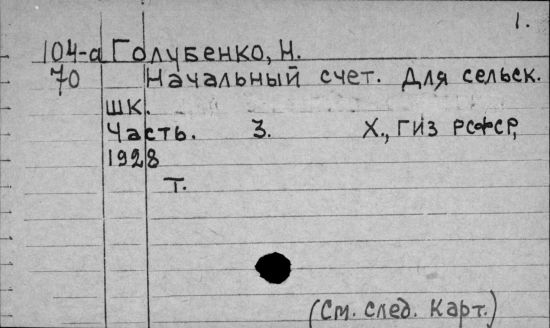 1.
104-а Голубенко, Н.
70 Начальный счет. Для сельск.
шк.
Часть. 3. Х., ГИЗ РСФСР,
1928
Т.
(См. след. карт.)